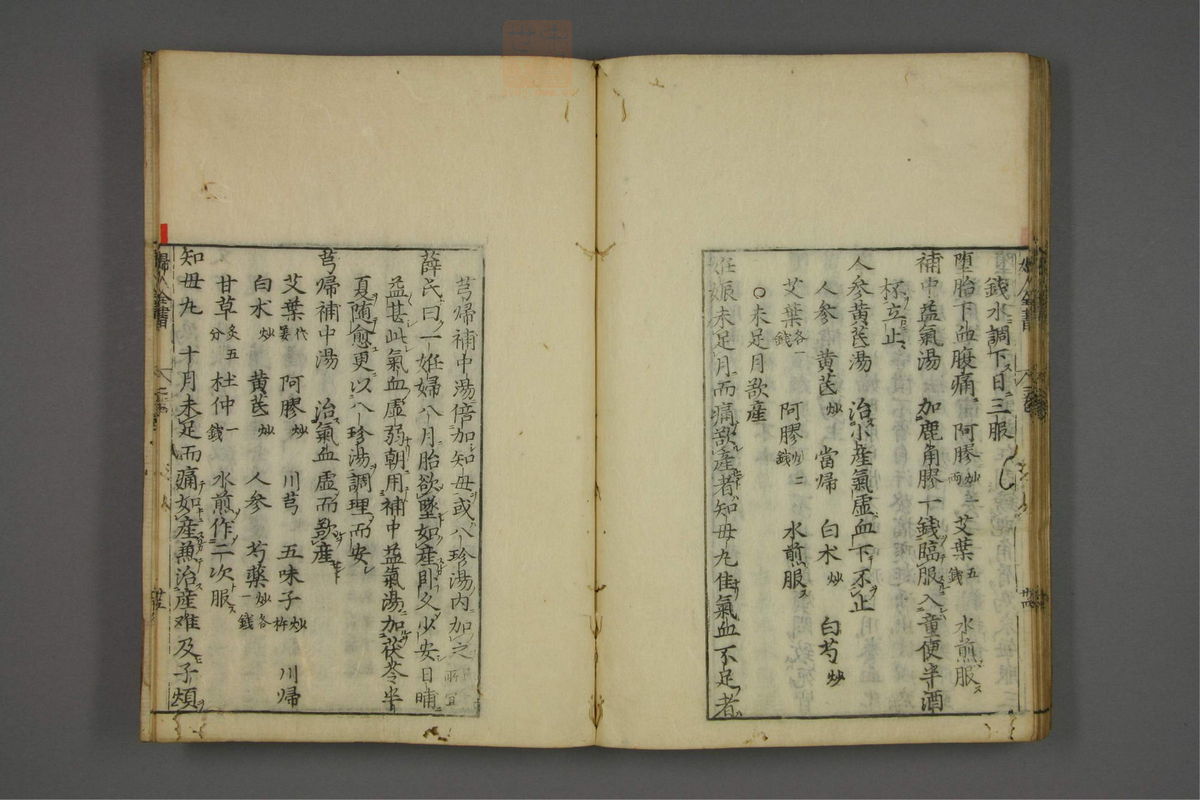 錢水調下日三服
堕胎下血腹痛 阿膠炒一兩 艾葉五錢 水煎服
補中益氣湯 加鹿角膠一錢臨服入童便半酒
杯立止
人參黃芪湯 治小產氣虛血下不止
人參 黃芪炒 當帰 白朮炒 白芍炒
艾葉各一錢 阿膠炒二錢 水煎服
○未足月欲產
妊娠未足月而痛欲產者知毋丸佳氣血不足者
芎帰補中湯倍加知毋或八珍湯内加之
薛氏曰一妊婦八月胎欲墜如產即久少安日晡
益甚此氣血虛弱朝用補中益氣湯加茯苓半
夏随愈更以八珍湯調理而安
芎帰補中湯 治氣血虛而欲產
艾葉代姜 阿膠炒 川芎 五味子炒杵 川帰
白朮炒 黃芪炒 人参 芍藥炒各一錢
甘草炙五分 杜仲一錢 水煎作二次服
知毋丸 十月未足而痛如產兼治產难及子煩
婦人全書